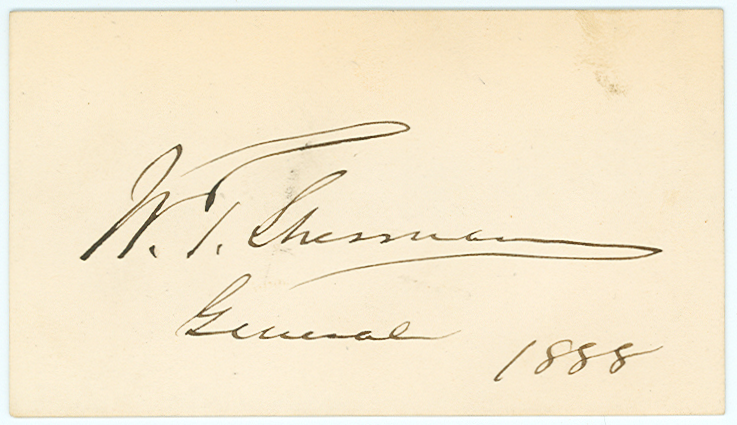 W. T. Sherman
General
1888